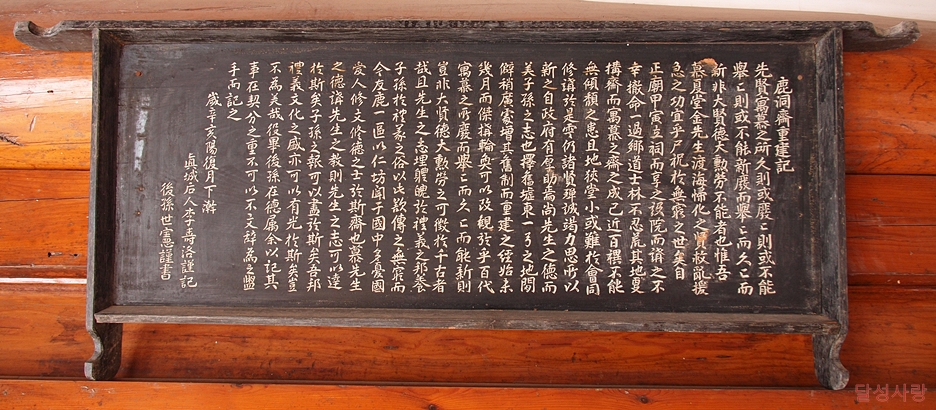 鹿洞齋重建記
先賢寓慕之所久則或廢廢則或不能
擧擧則或不能新廢而擧擧而久久而
新非大賢德大勳勞不能者也惟吾
慕夏堂金先生渡海慵化之賢救亂援
急之功宜乎尸祝於無窮之世矣自
正廟甲寅立祠而享之後院而講之不
幸撤命一過鄕道士林不忍荒其地更
構齋而寓慕之齋之成已近百禩不能
無傾頹之患且地狹堂小或難於會同
修講於是雲仍諸賢殫誠竭力思所以
新之自政府有原助焉尚先生之德而
美子孫之志也擇舊墟東一弓之地閒
僻稍廣處增其舊制而重建之經始未
幾月而傑搆輪奐可以改觀於乎百代
寓慕之所廢而擧擧而久久而能新則
豈非大賢德大勳勞之可徵於千古者
哉且先生之志埋軆魄於禮義之邦參
子孫於禮義之俗以此欵傳之無窮而
今友鹿一區以仁坊聞于國中多憂國
愛人修行文修德之士於斯齋也慕先生
之德講先生之敎則先生之志可以達
於斯矣子孫之報可以盡於斯矣吾邦
禮義文化之盛亦可以有光於斯矣豈
不爲美哉役畢後孫在德屬余以記其
事在契分之重不可以不文辭爲之盥
手而記之
歲辛亥陽復月下澣
眞城后人李壽洛謹記
後孫世憲謹書
달성사랑